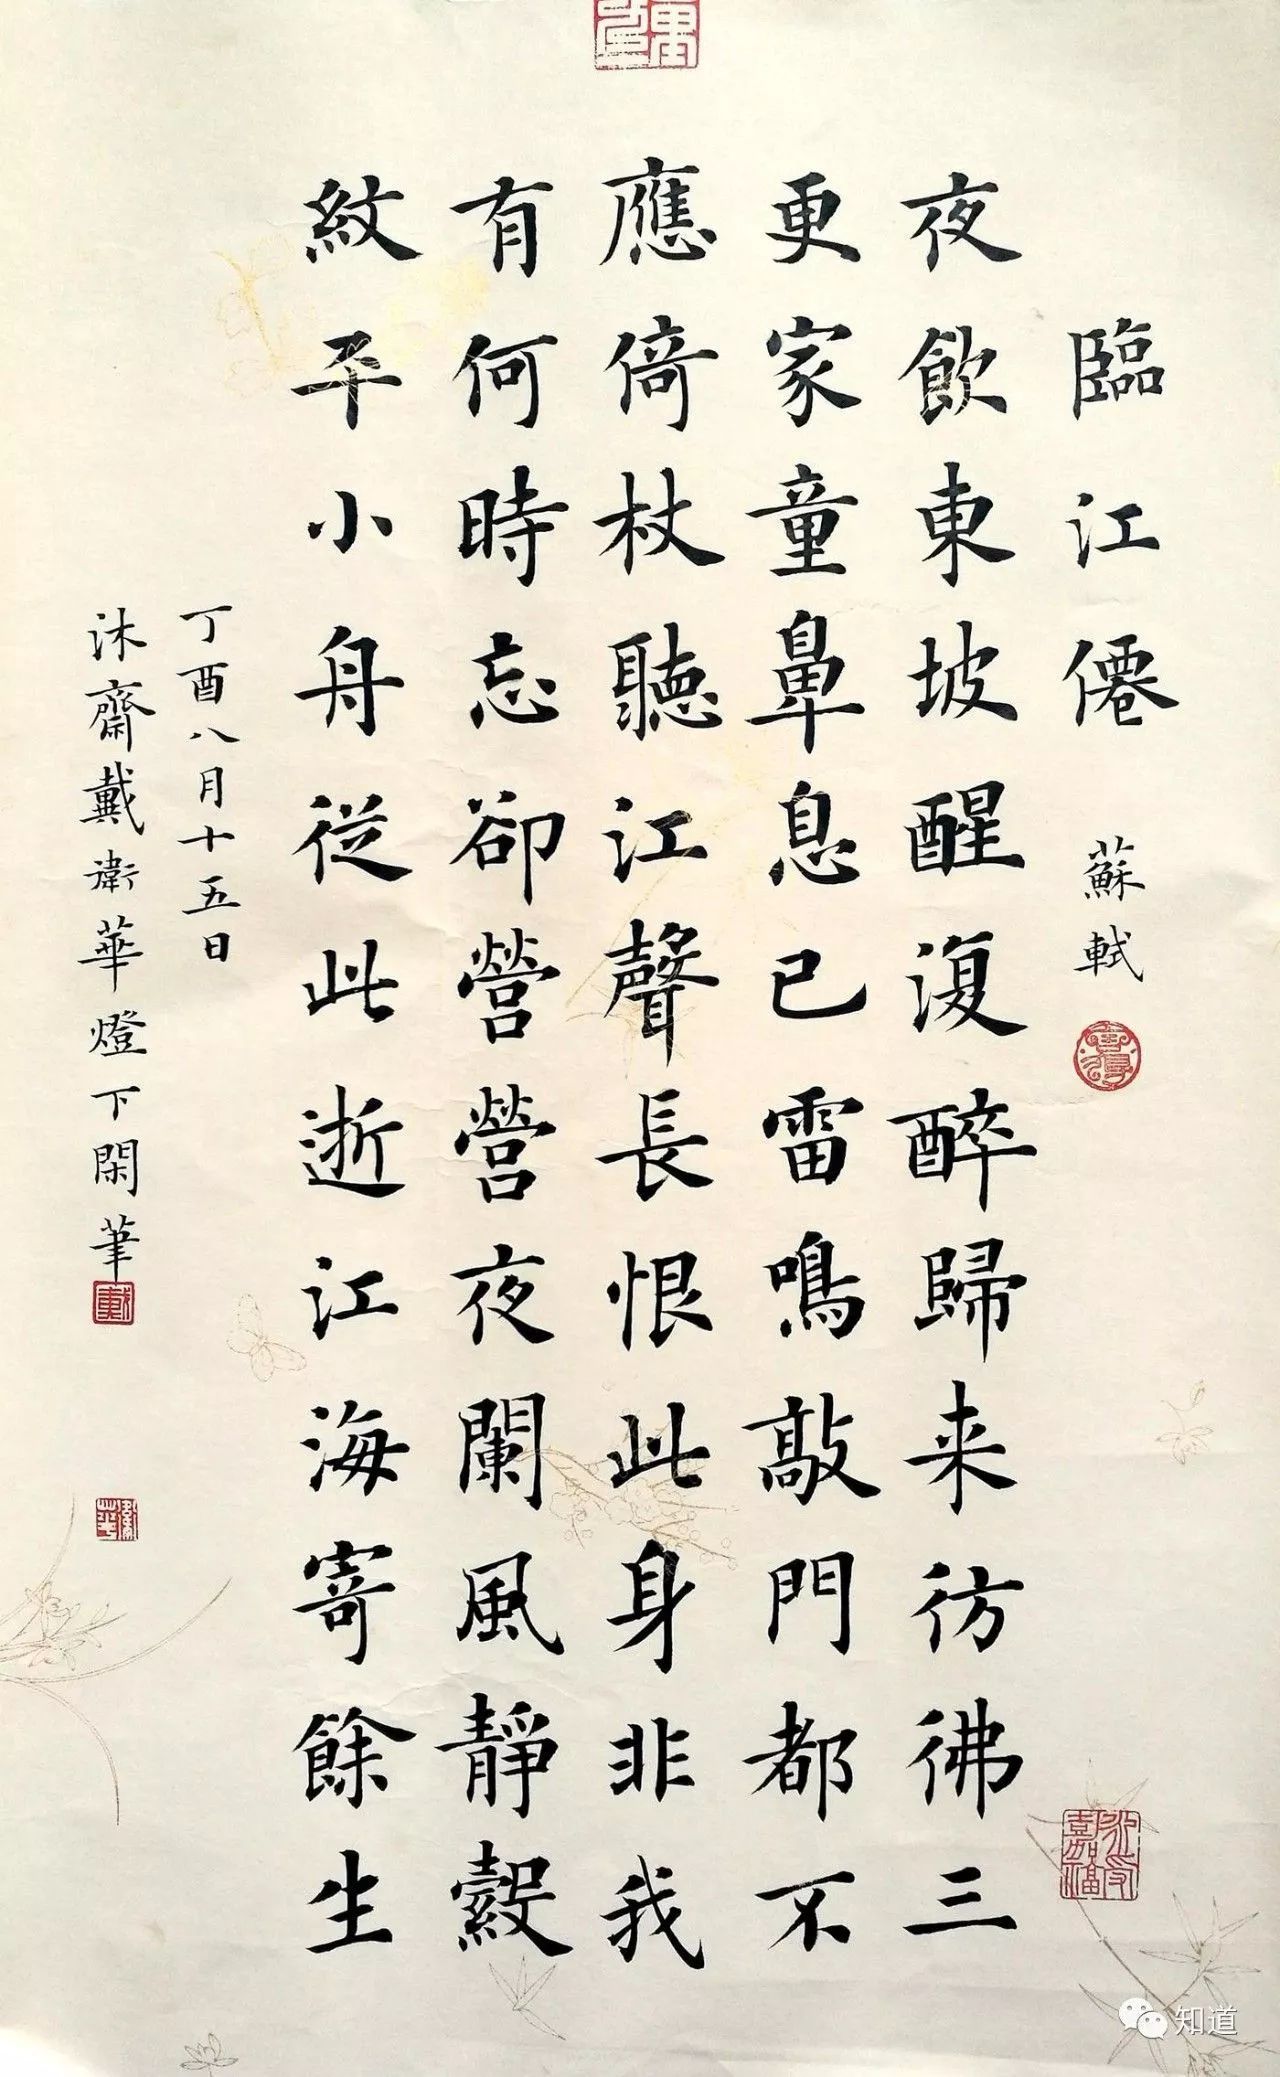 臨江僊 蘇軾
夜飲東坡醒復醉歸来彷彿三
更家童鼻息已雷鳴敲門都不
應倚杖聽江聲長恨此身非我
有何時忘卻營營夜闌風靜縠
紋平小舟從此逝江海寄餘生
丁酉八月十五日
沐齋戴衛華燈下閑筆
知道